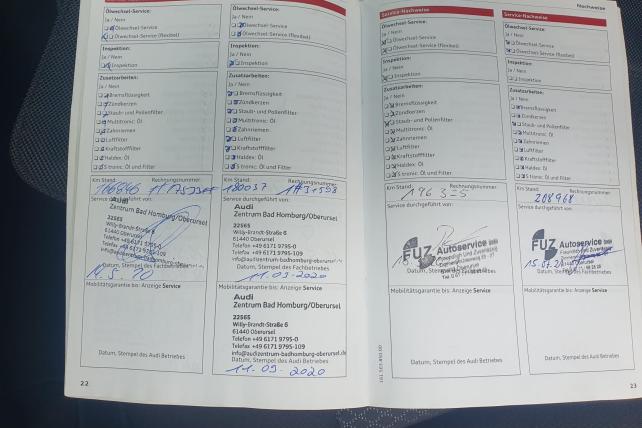 Ölwechsel-Service:
Ja / Nein
Ölwechsel-Service
Ölwechsel-Service (flexibel)
Inspektion:
Ja / Nein
Inspektion
Zusatzarbeiten:
Ja / Nein
Bremsflüssigkeit
Zündkerzen
Staub- und Pollenfilter
Multitronic: Öl
Zahnriemen
Luftfilter
Kraftstofffilter
Haldex: Öl
S tronic: Öl und Filter
Km Stand: Rechnungsnummer:
Service durchgeführt von:
Audi
Zentrum Bad Homburg/Oberursel
22565
Willy-Brandt-Straße 6
61440 Oberursel
Telefon +49 6171 9795-0
Telefax +49 6171 9795-109
Datum, Stempel des Fachbetriebes
Mobilitätsgarantie bis: Anzeige Service
Datum, Stempel des Audi Betriebes
22
Ölwechsel-Service:
Ja / Nein
Ölwechsel-Service
Ölwechsel-Service (flexibel)
Inspektion:
Ja / Nein
Inspektion
Zusatzarbeiten:
Ja / Nein
Bremsflüssigkeit
Zündkerzen
Staub- und Pollenfilter
Multitronic: Öl
Zahnriemen
Luftfilter
Kraftstofffilter
Haldex: Öl
S tronic: Öl und Filter
Km Stand: Rechnungsnummer:
180037
Service durchgeführt von:
Audi
Zentrum Bad Homburg/Oberursel
22565
Willy-Brandt-Straße 6
61440 Oberursel
Telefon +49 6171 9795-0
Telefax +49 6171 9795-109
info@audizentrum-badhomburg-oberursel.de
Datum, Stempel des Fachbetriebes
11.09-2020
Mobilitätsgarantie bis: Anzeige Service
Audi
Zentrum Bad Homburg/Oberursel
22565
Willy-Brandt-Straße 6
61440 Oberursel
Telefon +49 6171 9795-0
Telefax +49 6171 9795-109
info@audizentrum-badhomburg-oberursel.de
Datum, Stempel des Audi Betriebes
11.09-2020
Service-Nachweise
Ölwechsel-Service:
Ja / Nein
Ölwechsel-Service
Ölwechsel-Service (flexibel)
Inspektion:
Ja / Nein
Inspektion
Zusatzarbeiten:
Ja / Nein
Bremsflüssigkeit
Zündkerzen
Staub- und Pollenfilter
Multitronic: Öl
Zahnriemen
Luftfilter
Kraftstofffilter
Haldex: Öl
S tronic: Öl und Filter
Km Stand: Rechnungsnummer:
Service durchgeführt von:
FUZ Autoservice
Mobilitätsgarantie bis: Anzeige Service
Datum, Stempel des Audi Betriebes
Nachweise
Service-Nachweise
Ölwechsel-Service:
Ja / Nein
Ölwechsel-Service
Ölwechsel-Service (flexibel)
Inspektion:
Ja / Nein
Inspektion
Zusatzarbeiten:
Ja / Nein
Bremsflüssigkeit
Zündkerzen
Staub- und Pollenfilter
Multitronic: Öl
Zahnriemen
Luftfilter
Kraftstofffilter
Haldex: Öl
S tronic: Öl und Filter
Km Stand: Rechnungsnummer:
208968
Service durchgeführt von:
FUZ Autoservice
Mobilitätsgarantie bis: Anzeige Service
Datum, Stempel des Audi Betriebes
23